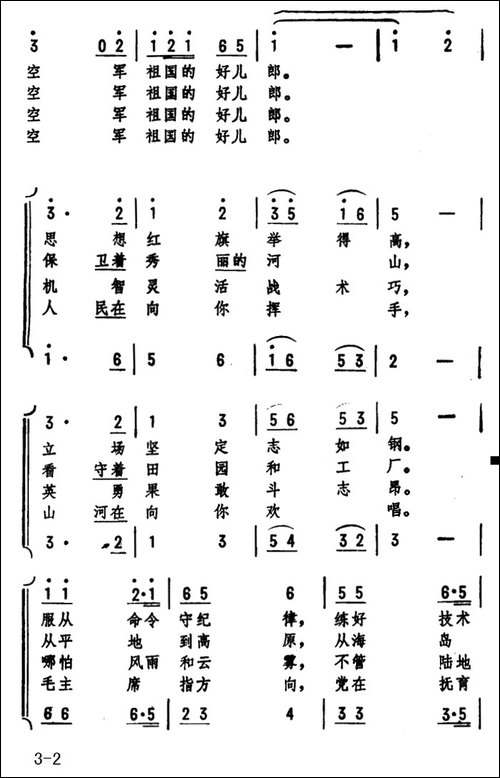 3 0 2 | 1 2 1 6 5 | 1 — | 1 2
空 军 祖国的 好儿 郎。
空 军 祖国的 好儿 郎。
空 军 祖国的 好儿 郎。
空 军 祖国的 好儿 郎。
3· 2 | 1 2 | 3 5 1 6 | 5 — |
思 想 红 旗 举 得 高,
保 卫着 秀 丽的 河 山,
机 智 灵 活 战 术 巧,
人 民在 向 你 挥 手,
1· 6 | 5 6 | 1 6 5 3 | 2 — |
3· 2 | 1 3 | 5 6 5 3 | 5 — |
立 场 坚 定 志 如 钢。
看 守着 田 园 和 工 厂。
英 勇 果 敢 斗 志 昂。
山 河在 向 你 欢 唱。
3· 2 | 1 3 | 5 4 3 2 | 3 — |
1 1 2·1 | 6 5 6 | 5 5 6·5 |
服从 命令 守纪 律, 练好 技术
从平 地 到高 原, 从海 岛
哪怕 风雨 和云 雾, 不管 陆地
毛主 席 指方 向, 党在 抚育
6 6 6·5 | 2 3 4 | 3 3 3·5 |
3-2